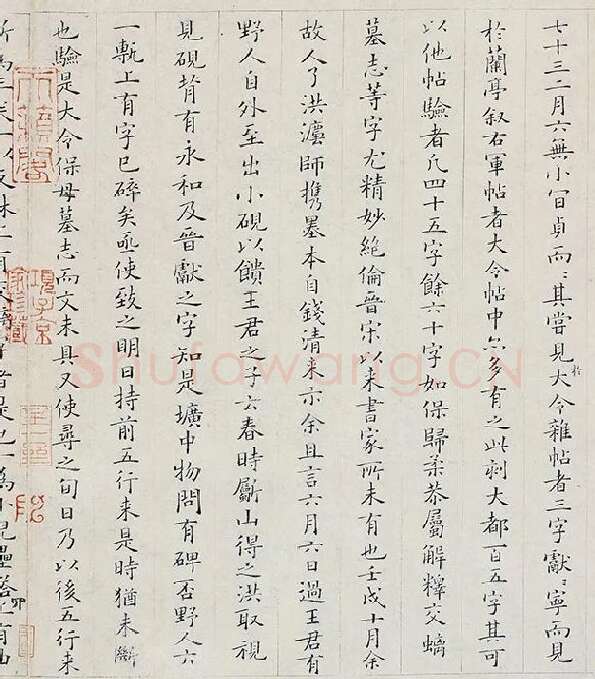 七十三二月六無小冝貞而〻其嘗見於大令雜帖者三字獻〻寧而見
於蘭亭叙右軍帖者大令帖中亦多有之此刻大都一百五字其可
以他帖驗者凡四十五字餘六十字如保歸柔恭屬解釋交螭
墓志等字尤精妙絕倫晉宋以來書家所未有也壬戌十月余
故人了洪灋師攜墨本自錢清来示余且言六月六日過王君有
野人自外至出小硯以饋王君之子云春時斸山得之洪取視
見硯背有永和及晉獻之字知是壙中物問有碑否野人云
一甎上有字已碎矣亟使致之明日持前五行来是時猶未斷
也驗是大令保母墓志而文未具又使尋之旬日乃以後五行来
天籟閣
項子京家珍藏
Shufawang.CN